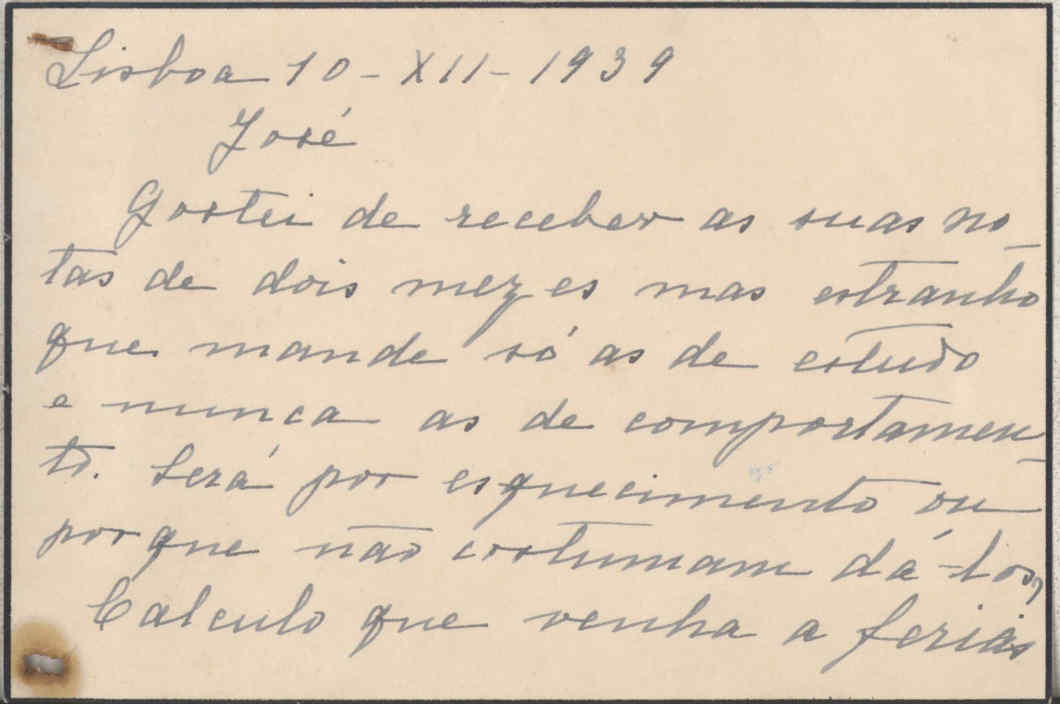 Lisboa 10-XII-1939
José
Gostei de receber as suas no_
tas de dois mezes mas estranho
que mande só as de estudo
e nunca as de comportamen_
to. Será por esquecimento ou
porque não costumam dá-los,
Calculo que venha a ferias